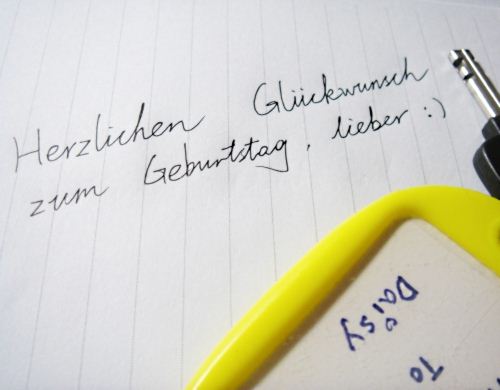 Herzlichen Glückwunsch
zum Geburtstag, lieber :)
To
Daisy